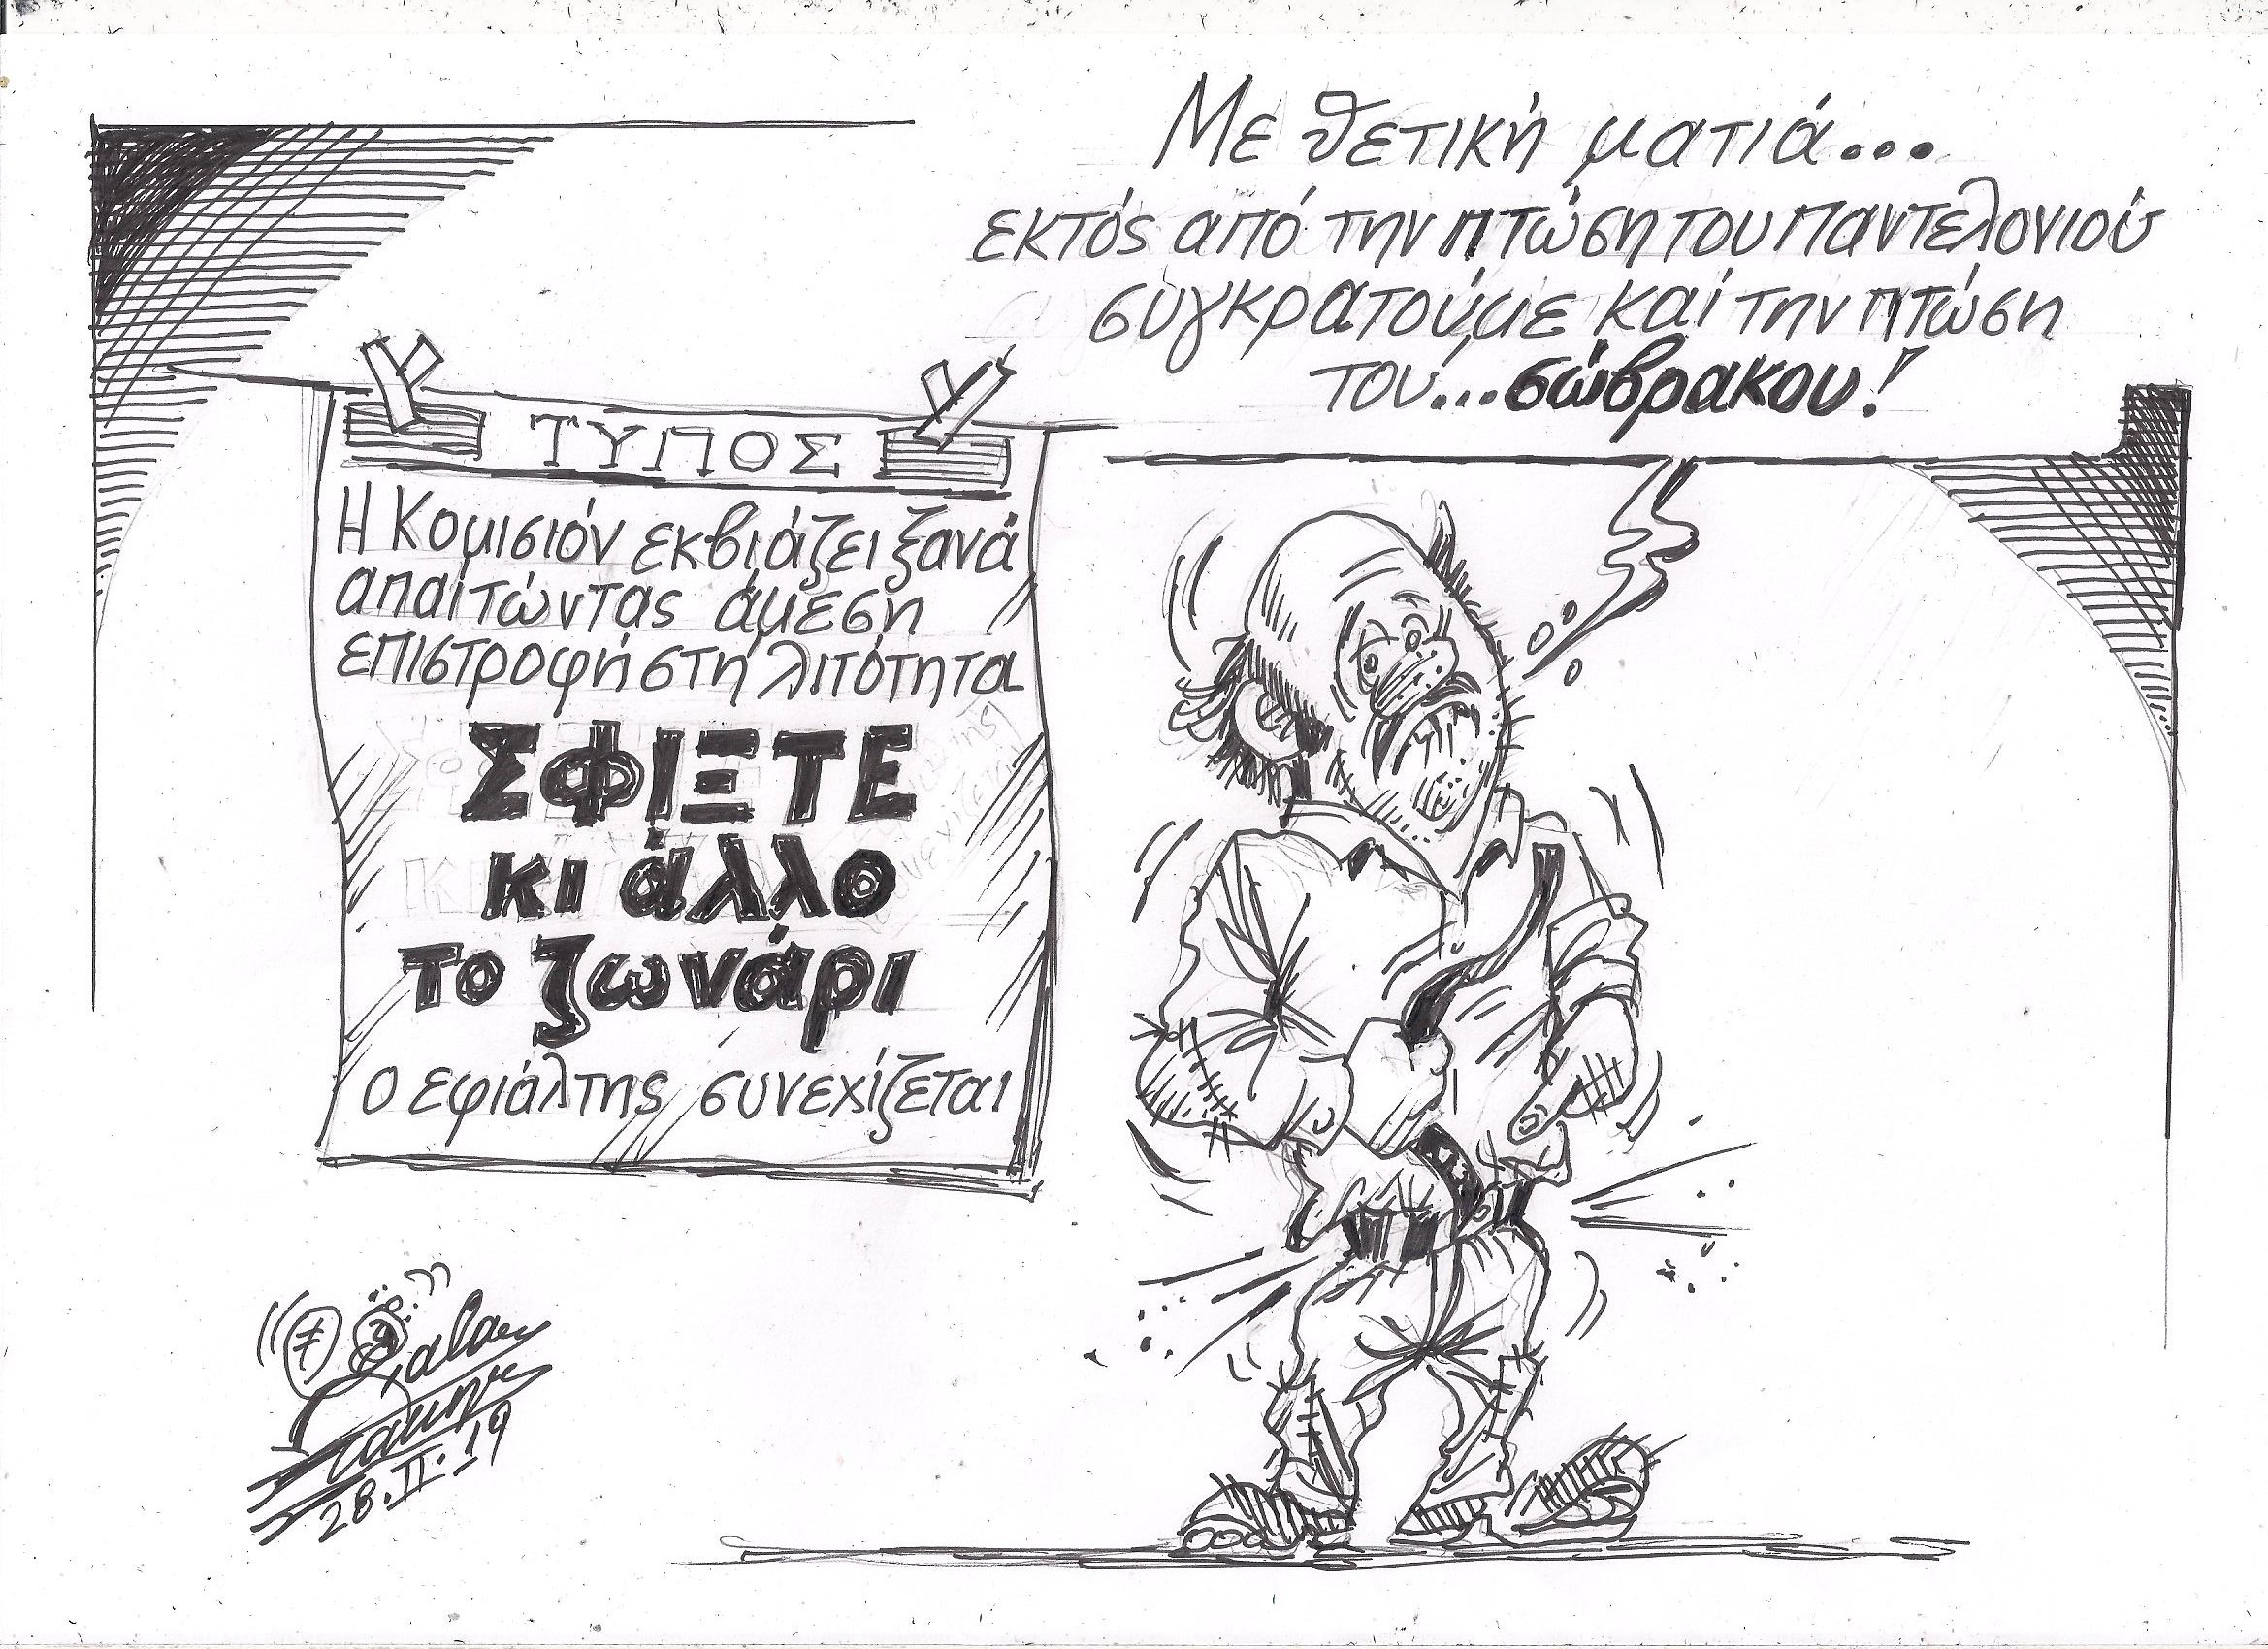 Με θετική ματιά...
εκτός από την πτώση του παντελονιού
συγκρατούμε και την πτώση
του...σώβρακου!
ΤΥΠΟΣ
Η Κομισιόν εκβιάζει ξανά
απαιτώντας άμεση
επιστροφή στη λιτότητα
ΣΦΙΞΤΕ
κι άλλο
το ζωνάρι
ο εφιάλτης συνεχίζεται
28.II.19